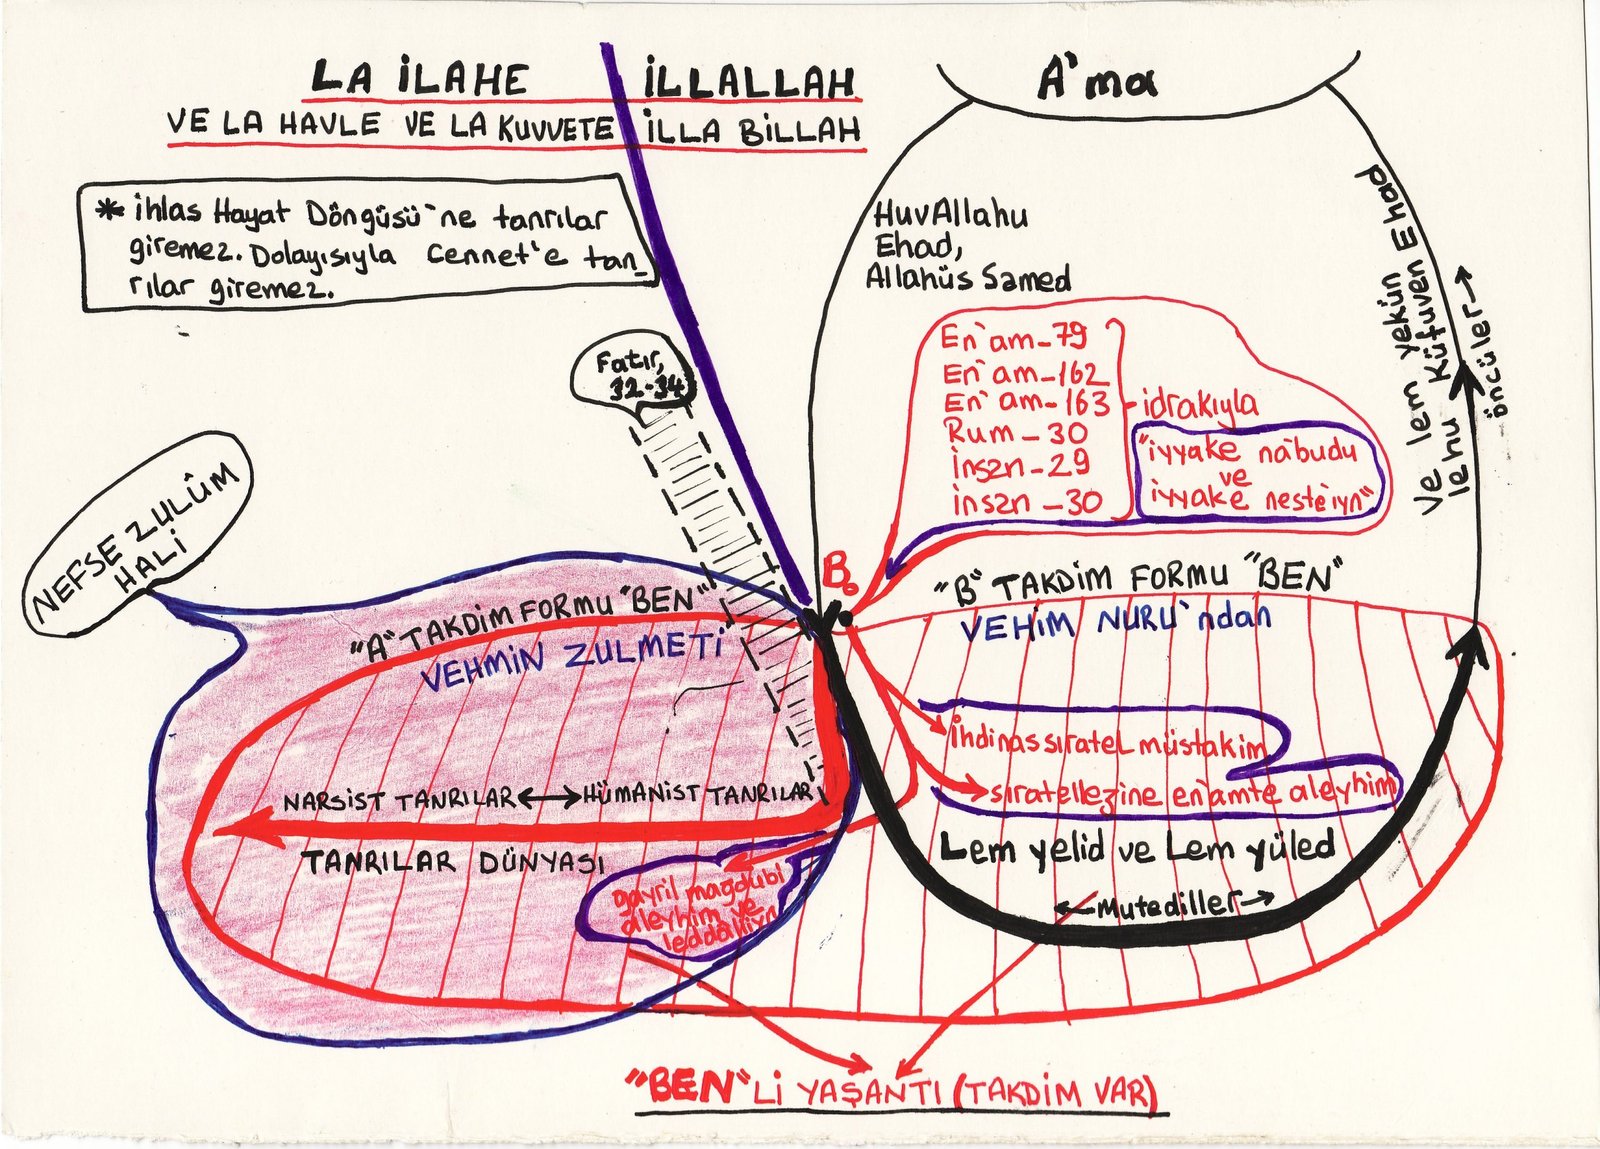 LA İLAHE İLLALLAH
VE LA HAVLE VE LA KUVVETE İLLA BİLLAH
A'ma
* ihlas Hayat Döngüsü'ne tanrılar
giremez. Dolayısıyla Cennet'e tan_
rılar giremez.
HuvAllahu
Ehad,
Allahüs Samed
Ve lem yekün
lehu Küfuven Ehad
öncüler→
Fatır,
32-34
En'am_79
En'am_162
En'am_163
Rum_30
İnsan_29
İnsan_30
idrakıyla
"iyyake nabudu
ve
iyyake nesteiyn"
NEFSE ZULÛM
HALİ
"A" TAKDİM FORMU "BEN"
VEHMİN ZULMETİ
B
"B" TAKDİM FORMU "BEN"
VEHİM NURU'ndan
İhdinassıratel müstakim
sıratellezine en'amte aleyhim
NARSİST TANRILAR ↔ HÜMANİST TANRILAR
TANRILAR DÜNYASI
Lem yelid ve Lem yüled
←Mutediller→
gayril magdubi
aleyhim ve
leddâlliyn
"BEN"Lİ YAŞANTI (TAKDİM VAR)